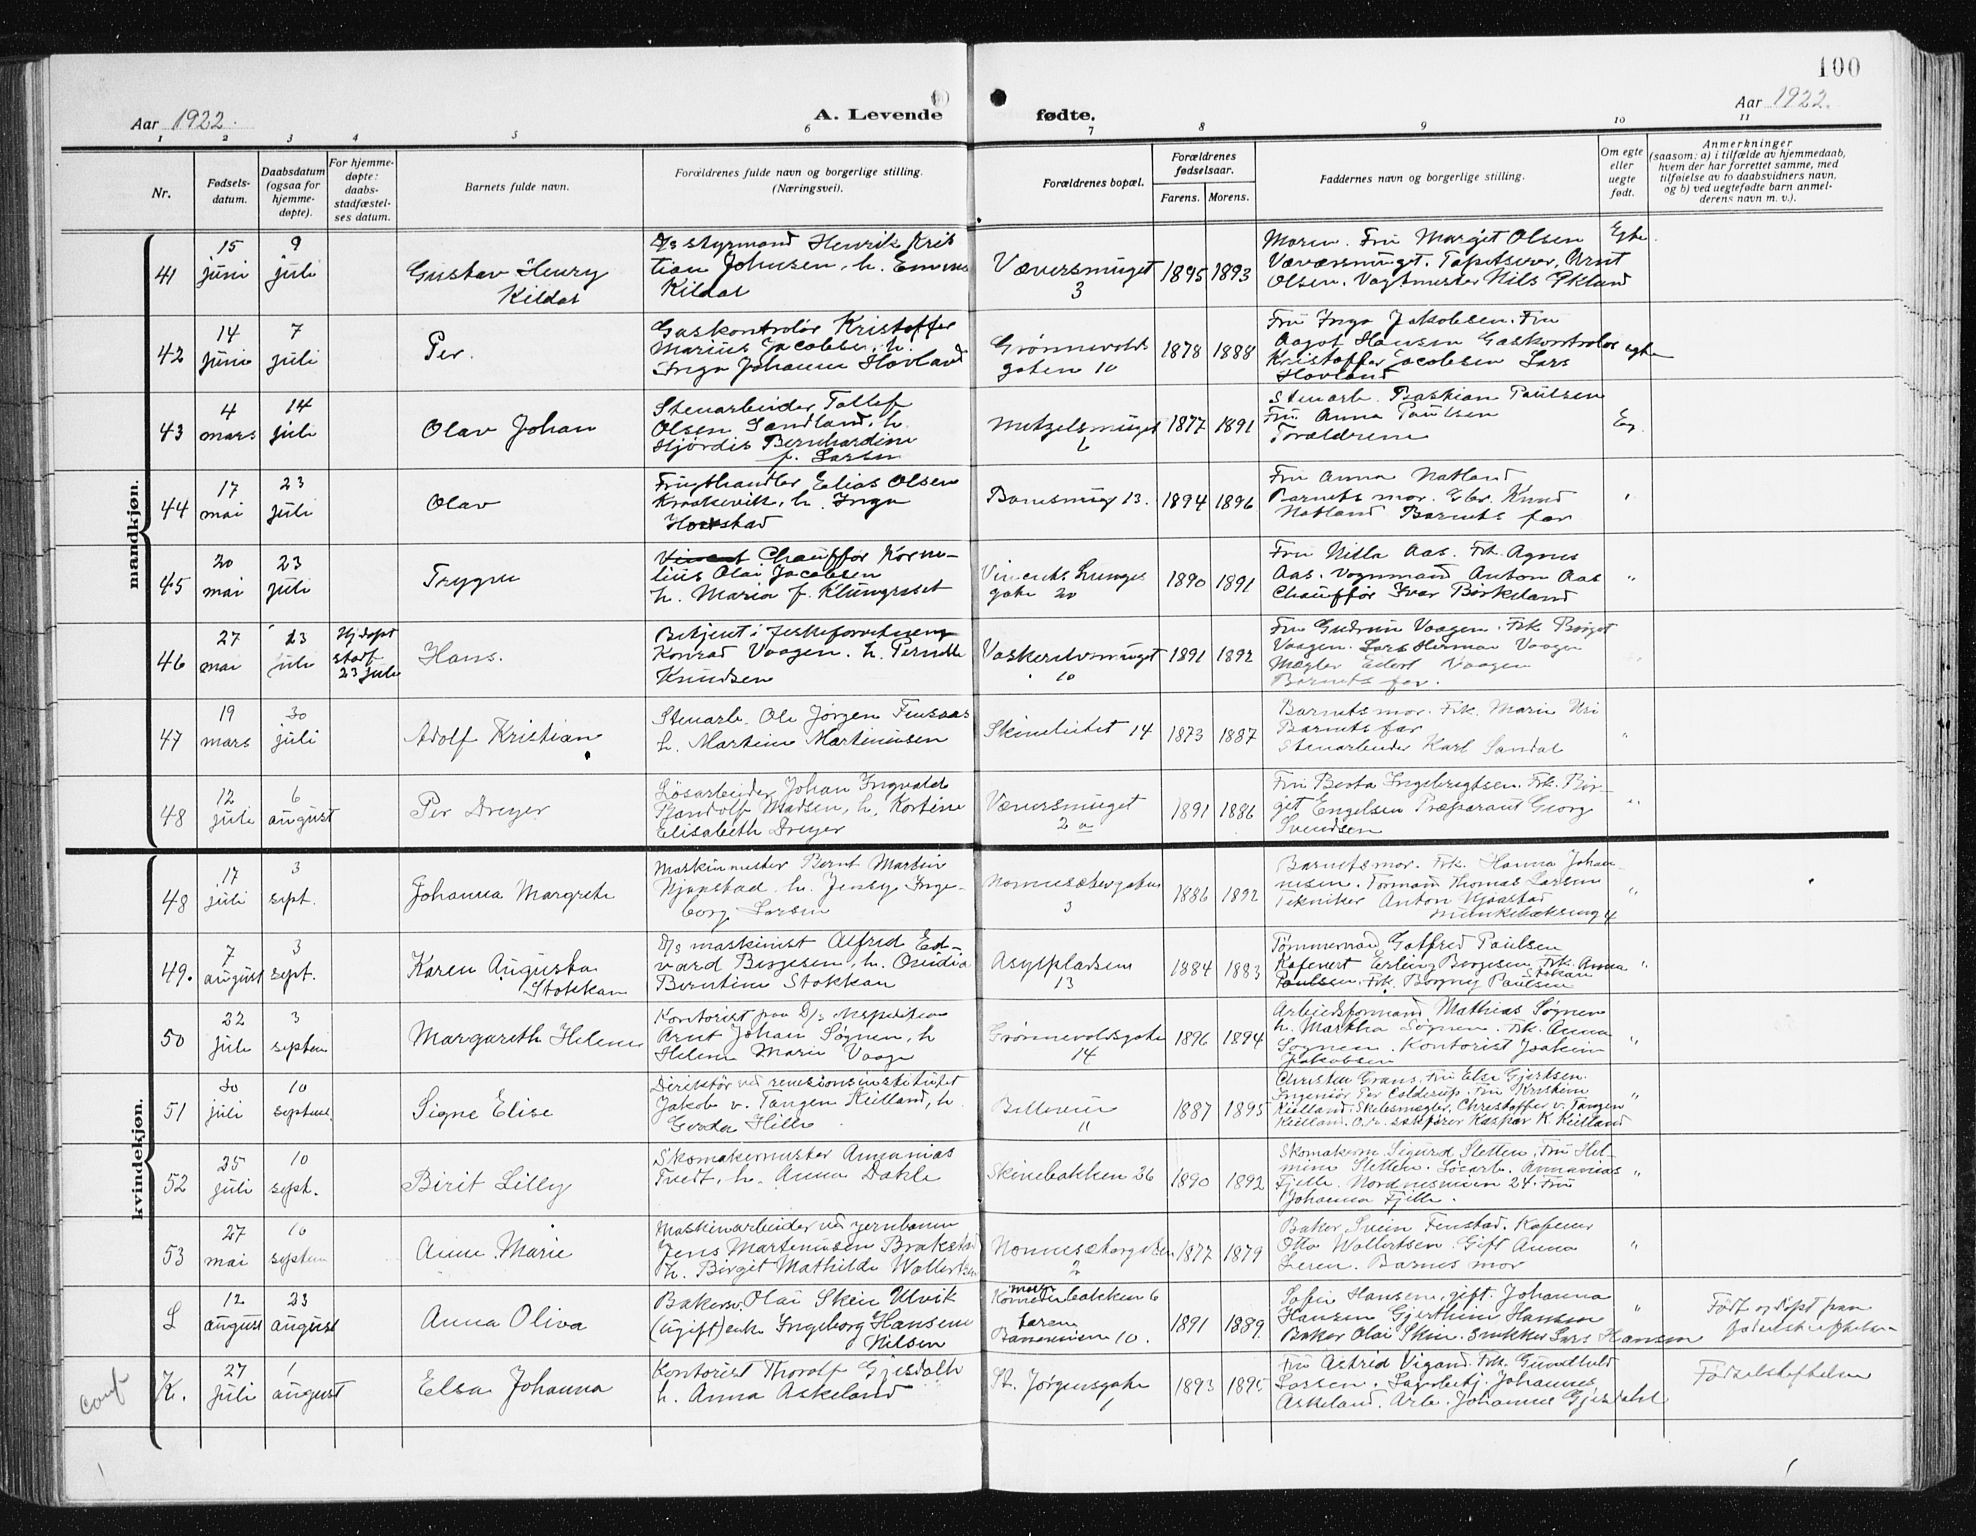 100
Aar 1922.
A. Levende fødte.
Aar 1922.
1 2 3 4 5 6 7 8 9 10 11
Nr.
Fødsels-
datum.
Daabsdatum
(ogsaa for
hjemme-
døpte).
For hjemme-
døpte:
daabs-
stadfæstel-
ses datum.
Barnets fulde navn.
Forældrenes fulde navn og borgerlige stilling.
(Næringsvei).
Forældrenes bopæl.
Forældrenes
fødselsaar.
Farens. Morens.
Faddernes navn og borgerlige stilling.
Om egte
eller
uegte
født.
Anmerkninger
(saasom: a) i tilfælde av hjemmedaab,
hvem der har forrettet samme, med
tilføielse av to daabsvidners navn,
og b) ved uegtefødte barn anmel-
derens navn m. v.).
mandkjøn.
41
15
juni
9
juli
Gustav Henry
Kildal
D/s styrmand Henrik Kris
tian Johnsen, h. Emma
Kildal
Væversmuget
3
1895 1893
Moren. Fru Margit Olsen
Væversmuget. Tapetserer Arnt
Olsen. Vagtmester Nils Eklund
Egte.
42
14
juni
7
juli
Per.
Gaskontrolør Kristoffer
Marius Jacobsen, h.
Inga Johanne Hovland
Grønnevolds
gaten 10
1878 1888
Fru Inga Jakobsen. Fru
Aagot Hansen Gaskontrolør
Kristoffer Jacobsen Lars
Hovland
egte
43
4
mars
14
juli
Olav Johan
Stenarbeider Tollef
Olsen Sandland, h.
Hjørdis Bernhardine
f. Larsen
Mutzelsmuget
6
1877 1891
Stenarb. Bastian Paulsen
Fru Anna Paulsen
Forældrene
Eg.
44
17
mai
23
juli
Olav
Frugthandler Elias Olsen
Kraakevik, h. Inga
Havstad
Banesmug 13.
1894 1896
Fru Anna Natland
Barnets mor. Gbr. Knud
Natland Barnets far
"
45
20
mai
23
juli
Trygve
Chauffør Korne-
lius Olai Jacobsen
h. Maria f. Klungreset
Vincents Lunges
gate 20
1890 1891
Fru Nilla Aas. Frk. Agnes
Aas. Vognmand Anton Aas
Chauffør Ivar Birkeland
"
46
27
mai
23
juli
Hj.døpt
stadf.
23 juli
Hans.
Betjent i fiskeforretning
Konrad Vaagen. h. Pernille
Knudsen
Vaskerelvsmuget
10
1891 1892
Fru Gudrun Vaagen. Frk Birgit
Vaagen. Lars Herman Vaagen
Mægler Edort Vaagen
Barnets far.
"
47
19
mars
30
juli
Adolf Kristian
Stenarb. Ole Jørgen Tensaas
h. Martine Martinusen
Skinelvet 14
1873 1887
Barnets mor. Frk. Marie Uri
Barnets far
Stenarbeider Karl Sandal
"
48
12
juli
6
august
Per Dreyer
Løsarbeider Johan Ingvald
Randolf Madsen, h. Kortine
Elisabeth Dreyer
Væversmuget
2 a
1891 1886
Fru Berta Ingebrigtsen. Frk. Bir-
git Engelsen Præparant Georg
Svendsen
"
kvindekjøn.
48
17
juli
3
sept.
Johanna Margrete
Maskinmester Bernt Martin
Njaastad. h. Jensy Inge-
borg Larsen
Nonnesetergaten
3
1886 1892
Barnets mor. Frk. Hanna Johan-
nesen. Formand Thomas Larsen
Tekniker Anton Njaastad
Munkebæksmug 4
"
49.
7
august
3
sept.
Karen Augusta
Stokkan
D/s maskinist Alfred Ed-
vard Børgesen, h. Ovidia
Berntine Stokkan
Asylpladsen
13
1884 1883
Tømmermand Gotfred Paulsen
Kafevert Erling Børgesen. Frk. Anna
Stokan
Paulsen. Frk. Borgny Paulsen
"
50
22
juli
3
septem
Margareth Helene
Kontorist paa D/s expedition
Arnt Johan Søgnen, h
Helene Marie Vaage
Grønnevoldsgate
14
1896 1894
Arbeidsformand Mathias Søgnen
h. Martha Søgnen. Frk. Anna
Søgnen. Kontorist Joakim
Jakobsen
"
51
30
juli
10
septem
Signe Elise
Direktør ved revisionsinstitutet
Jakob v. Tangen Kielland, h.
Gerda Hille
Bellevue
11
1887 1895
Christen Grans. Fru Else Gjertsen.
Ingeniør Per Colderup. Fru Kristine
Kielland. Skibsmægler Christoffer v. Tangen
Kielland. O.r. sakfører Kaspar K. Kielland
"
52
25
juli
10
sept.
Birit Lilly
Skomakermester Annanias
Tvedt, h. Anna Dahle
Skinebakken 26
1890 1892
Skomakerm. Sigurd Sletten. Fru Hel-
mine Sletten. Løsarb. Annanias
Fjelle. Nordnesveien 24. Fru
Johanna Fjelle.
"
53
27
mai
10
septem
Anne Marie
Maskinarbeider ved jernbanen
Jens Martinusen Brakstad
h. Birgit Mathilde Wollertsen
Nonnesetergaten
2
1877 1879
Baker Svein Fenstad. Kafeeier
Otto Wollertsen. Gift Anna
Leren. Barnes mor
"
L
12
august
23
august
Anna Oliva
Bakersv. Olai Skeie Ulvik
(ugift) enke Ingeborg Hansine
Nilsen
bakken 6
faren
10.
1891 1889.
Sofie Hansen, gift. Johanna
Hansen Gjertine Hansen
Baker Olai Skeie. Snekker Lars Hansen
"
Født og døpt paa
fødselsstiftelsen
conf
K.
27
juli
1
august
Elsa Johanna
Kontorist Thorolf Gjesdahl
h. Anna Askeland
St. Jørgensgate
1
1893 1895
Fru Astrid Vigand. Frk. Gunhild
Larsen. Lagerbetj. Johannes
Askeland. Arb. Johannes Gjesdahl
Fødselsstiftelsen